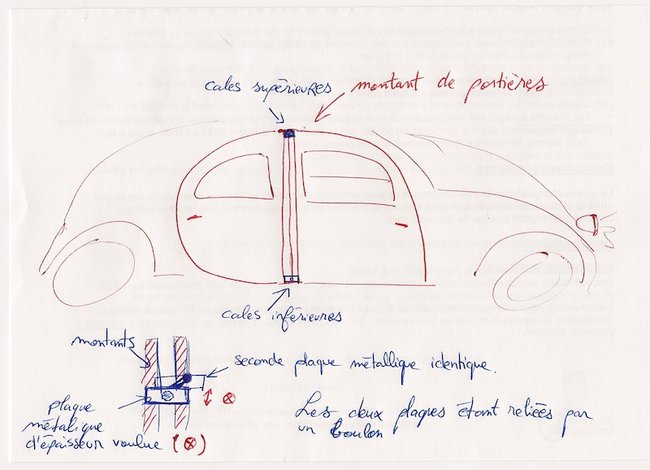 cales supérieures
montant de portières
cales inférieures
montants
seconde plaque métallique identique.
plaque
métalique
d'épaisseur voulue (⊗)
⊗
Les deux plaques étant reliées par
un boulon